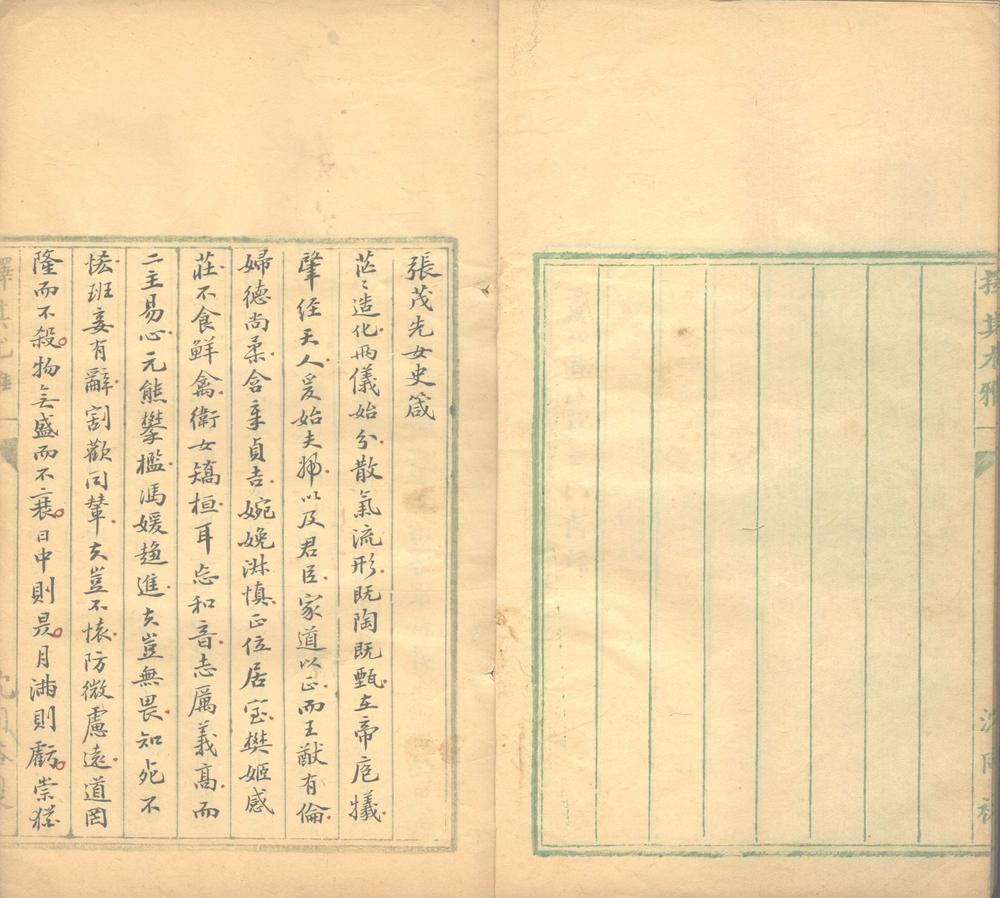 擇其尤雅
張茂先女史箴
茫〻造化兩儀始分散氣流形既陶既甄在帝庖犧
肇經天人爰始夫婦以及君臣家道以正而王猷有倫
婦德尚柔含章貞吉婉娩淋慎正位居室樊姬感
莊不食鮮禽衛女矯桓耳忘和音志厲義高而
二主易心元熊攀檻馮媛趍進夫豈無畏知死不
恡班妾有辭割歡同輦夫豈不懷防微慮遠道罔
隆而不殺物無盛而不衰日中則昃月滿則虧崇猶
擇其尤雅